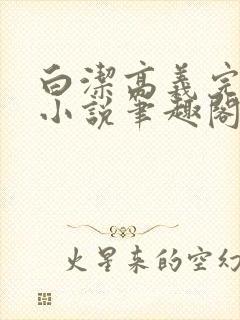 白潔高義完
小說筆趣閣
火星来的空幻